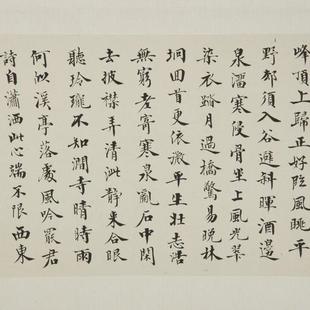 峰頂上歸正好臨風眺平
野那須入谷避斜暉酒邊
泉溜寒侵骨坐上風光翠
染衣踏月過橋驚易晚林
坰回首更依微平生壯志浩
無窮老寄寒泉亂石中閑
去披襟弄清泚靜來合眼
聽玲瓏不知澗寺晴時雨
何似溪亭落處風吟罷君
詩自瀟洒此心端不限西東